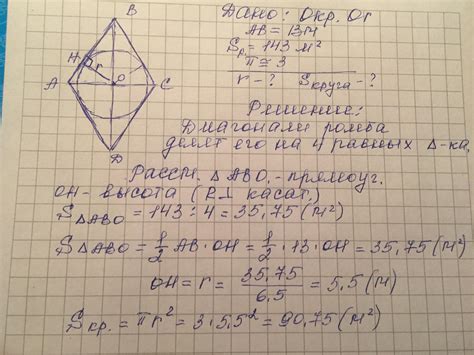 B
H
r
A
O
C
D
Дано: Окр. Or
AB = 13м
Sр. = 143 м²
π ≅ 3
r - ? Sкруга - ?
Решение:
Диагонали ромба
делят его на 4 равных Δ-ка.
Рассм. ΔABO. - прямоуг.
OH - высота (R⊥ касат.)
SΔABO = 143 : 4 = 35,75 (м²)
SΔABO = 1/2 AB · OH = 1/2 · 13 · OH = 35,75 (м²)
OH = r = 35,75/6,5 = 5,5 (м)
Sкр. = πr² = 3 · 5,5² = 90,75 (м²)